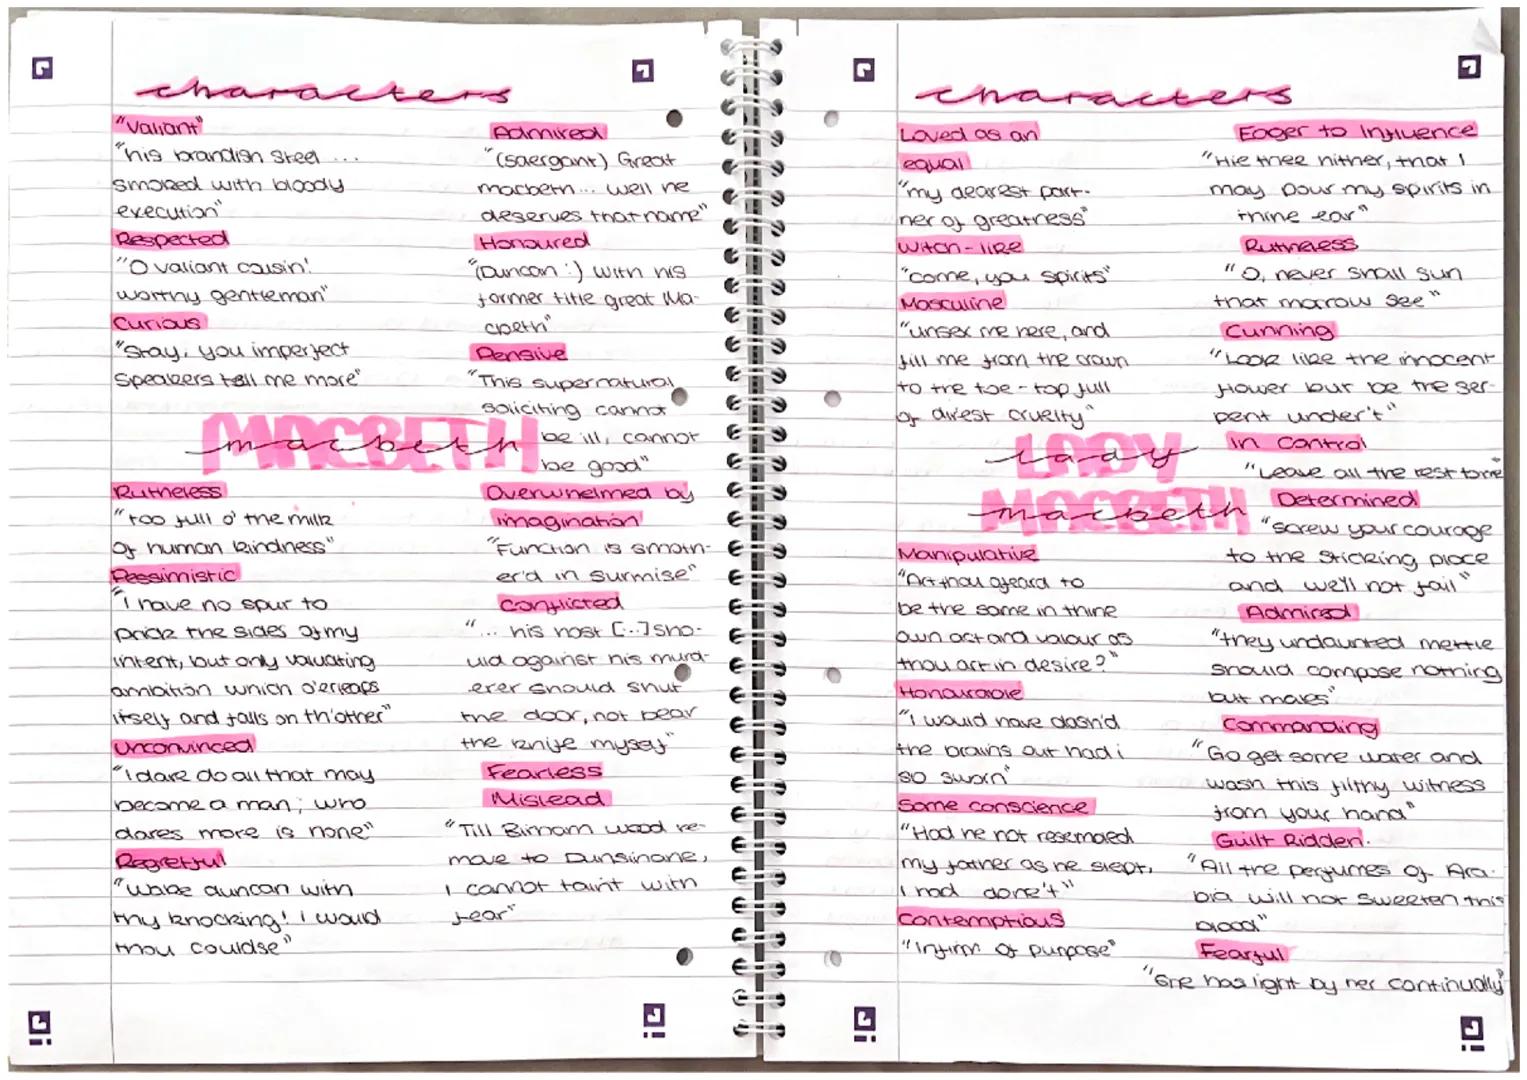 characters
"Valiant"
"his brandish steel ...
smoked with bloody
execution"
Respected
"O valiant cousin!
worthy gentleman"
Curious
"Stay, you imperfect
Speakers tell me more"
Admired
"(saergant) Great
macbeth... well he
deserves that name"
Honoured
"(Duncan:) with his
former title great Ma-
cbeth"
Pensive
"This supernatural
soliciting cannot
be ill, cannot
be good"
MACBETH
macbeth
Ruthless
"too full o' the milk
of human kindness"
Pessimistic
"I have no spur to
prick the sides of my
intent, but only vaulating
ambition which o'erleaps
itself and falls on th'other"
Unconvinced
"I dare do all that may
become a man; who
dares more is none"
Regretful
"Wake duncan with
thy knocking! I would
thou couldse"
Overwhelmed by
imagination
"Function is smoth-
er'd in surmise"
Conflicted
"... his host [...] sho-
uld against his murd-
erer should shut
the door, not bear
the knife myself"
Fearless
Mislead
"Till Birnam wood re-
move to Dunsinane,
I cannot taint with
fear"
characters
Loved as an
equal
"my dearest part-
ner of greatness"
Witch-like
"come, you spirits"
Masculine
"unsex me here, and
fill me from the crown
to the toe-top full
of direst cruelty"
Eager to Influence
"Hie thee hither, that I
may pour my spirits in
thine ear"
Ruthless
"O, never shall sun
that morrow see"
Cunning
"Look like the innocent
flower but be the ser-
pent under't"
In Control
"Leave all the rest to me"
LADY
lady
MACBETH
macbeth
Manipulative
"Art thou afeard to
be the same in thine
own act and valour as
thou art in desire?"
Honourable
"I would have dash'd
the brains out had i
so sworn"
Some conscience
"Had he not resembled
my father as he slept,
I had done't"
Contemptious
"Infirm of purpose"
Determined
"screw your courage
to the sticking place
and we'll not fail"
Admired
"they undaunted mettle
should compose nothing
but males"
Commanding
"Go get some water and
wash this filthy witness
from your hand"
Guilt Ridden.
"All the perfumes of Ara-
bia will not sweeten this
blood"
Fearful
"She has light by her continually"